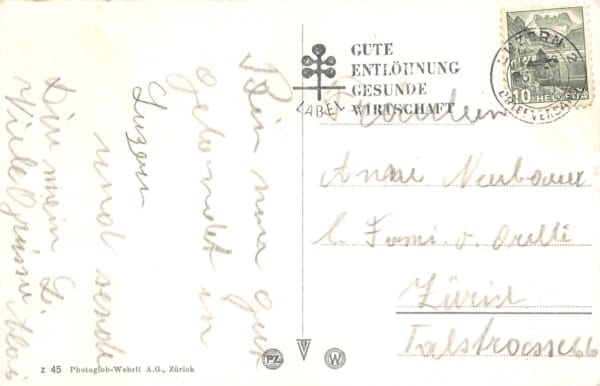 GUTE
ENTLÖHNUNG
GESUNDE
WIRTSCHAFT
LABEL
LUZERN 2
BRIEFVERSAND
10 HELVETIA
Bin nun gut
gelandet in
Luzern
und sende
Dir mein L.
Viele Grüsse Aloi
Fräulein
Anni Neubauer
b. Fami. v. Orelli
Zürich
Talstrasse 66
z 45 Photoglob-Wehrli A.G., Zürich
PZ W